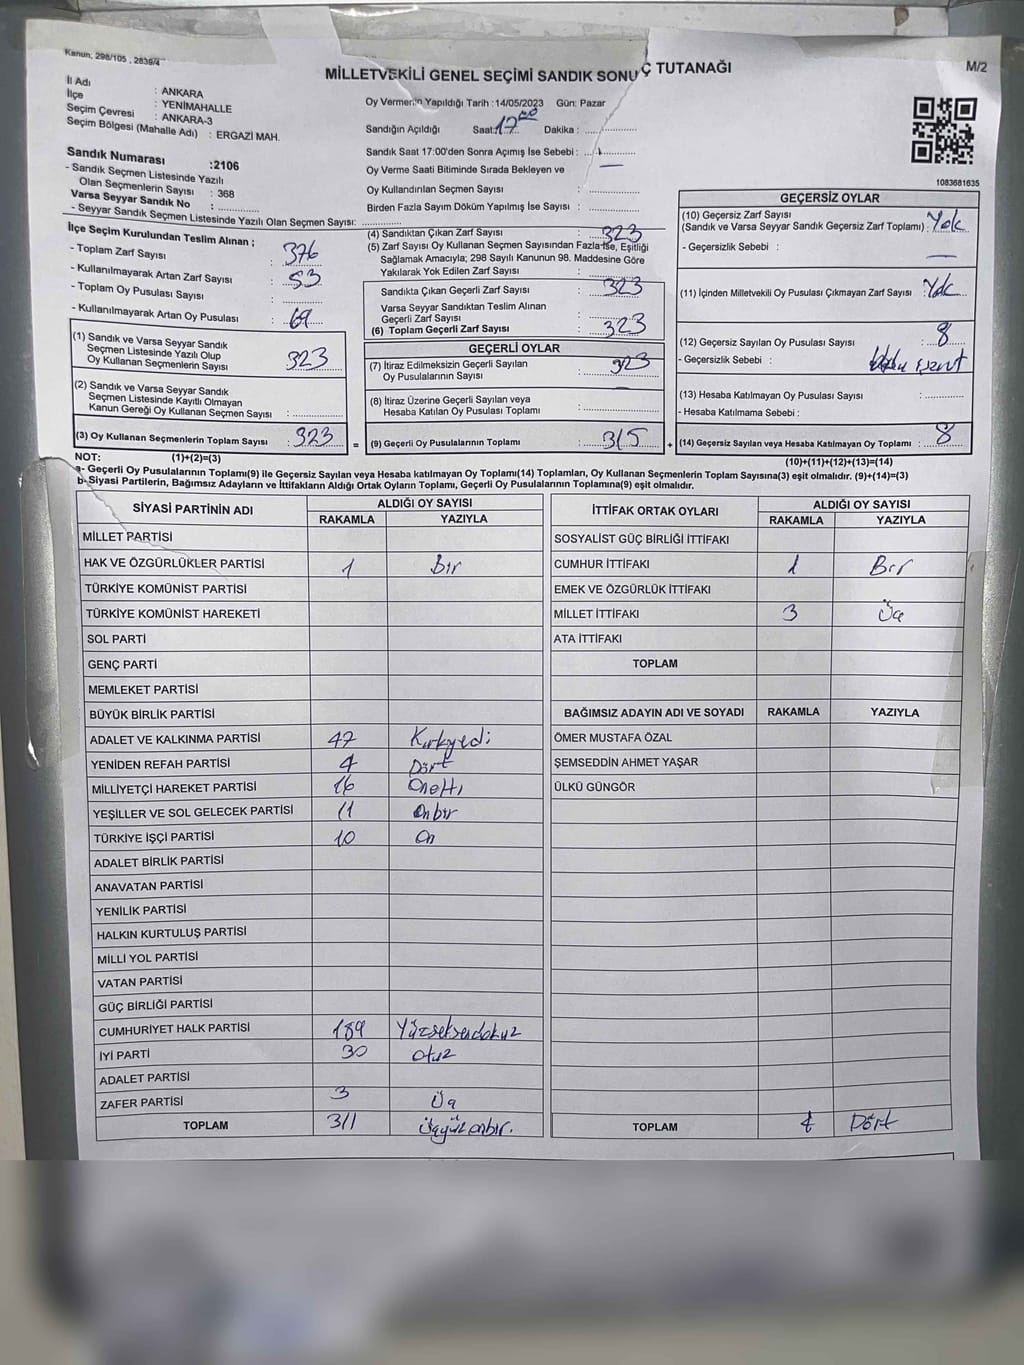 Kanun; 298/105 , 2839/4
MİLLETVEKİLİ GENEL SEÇİMİ SANDIK SONUÇ TUTANAĞI
M/2
İl Adı : ANKARA
İlçe : YENİMAHALLE
Seçim Çevresi : ANKARA-3
Seçim Bölgesi (Mahalle Adı) : ERGAZİ MAH.
Sandık Numarası :2106
- Sandık Seçmen Listesinde Yazılı
Olan Seçmenlerin Sayısı : 368
Varsa Seyyar Sandık No :
- Seyyar Sandık Seçmen Listesinde Yazılı Olan Seçmen Sayısı:
Oy Vermenin Yapıldığı Tarih :14/05/2023 Gün: Pazar
Sandığın Açıldığı Saat: 17 00 Dakika :
Sandık Saat 17:00'den Sonra Açımış İse Sebebi :
Oy Verme Saati Bitiminde Sırada Bekleyen ve
Oy Kullandırılan Seçmen Sayısı :
Birden Fazla Sayım Döküm Yapılmış İse Sayısı :
1083681635
İlçe Seçim Kurulundan Teslim Alınan ;
- Toplam Zarf Sayısı : 376
- Kullanılmayarak Artan Zarf Sayısı : 53
- Toplam Oy Pusulası Sayısı :
- Kullanılmayarak Artan Oy Pusulası : 69
(1) Sandık ve Varsa Seyyar Sandık
Seçmen Listesinde Yazılı Olup
Oy Kullanan Seçmenlerin Sayısı : 323
(2) Sandık ve Varsa Seyyar Sandık
Seçmen Listesinde Kayıtlı Olmayan
Kanun Gereği Oy Kullanan Seçmen Sayısı :
(3) Oy Kullanan Seçmenlerin Toplam Sayısı : 323 =
(4) Sandıktan Çıkan Zarf Sayısı : 323
(5) Zarf Sayısı Oy Kullanan Seçmen Sayısından Fazla İse, Eşitliği
Sağlamak Amacıyla; 298 Sayılı Kanunun 98. Maddesine Göre
Yakılarak Yok Edilen Zarf Sayısı :
Sandıkta Çıkan Geçerli Zarf Sayısı : 323
Varsa Seyyar Sandıktan Teslim Alınan
Geçerli Zarf Sayısı :
(6) Toplam Geçerli Zarf Sayısı : 323
GEÇERLİ OYLAR
(7) İtiraz Edilmeksizin Geçerli Sayılan
Oy Pusulalarının Sayısı : 323
(8) İtiraz Üzerine Geçerli Sayılan veya
Hesaba Katılan Oy Pusulası Toplamı :
(9) Geçerli Oy Pusulalarının Toplamı : 315 +
GEÇERSİZ OYLAR
(10) Geçersiz Zarf Sayısı
(Sandık ve Varsa Seyyar Sandık Geçersiz Zarf Toplamı) : Yok
- Geçersizlik Sebebi : —
(11) İçinden Milletvekili Oy Pusulası Çıkmayan Zarf Sayısı : Yok
(12) Geçersiz Sayılan Oy Pusulası Sayısı : 8
- Geçersizlik Sebebi :
(13) Hesaba Katılmayan Oy Pusulası Sayısı :
- Hesaba Katılmama Sebebi :
(14) Geçersiz Sayılan veya Hesaba Katılmayan Oy Toplamı : 8
NOT: (1)+(2)=(3) (10)+(11)+(12)+(13)=(14)
a- Geçerli Oy Pusulalarının Toplamı(9) ile Geçersiz Sayılan veya Hesaba katılmayan Oy Toplamı(14) Toplamları, Oy Kullanan Seçmenlerin Toplam Sayısına(3) eşit olmalıdır. (9)+(14)=(3)
b- Siyasi Partilerin, Bağımsız Adayların ve İttifakların Aldığı Ortak Oyların Toplamı, Geçerli Oy Pusulalarının Toplamına(9) eşit olmalıdır.
SİYASİ PARTİNİN ADI ALDIĞI OY SAYISI
RAKAMLA YAZIYLA
MİLLET PARTİSİ
HAK VE ÖZGÜRLÜKLER PARTİSİ 1 Bir
TÜRKİYE KOMÜNİST PARTİSİ
TÜRKİYE KOMÜNİST HAREKETİ
SOL PARTİ
GENÇ PARTİ
MEMLEKET PARTİSİ
BÜYÜK BİRLİK PARTİSİ
ADALET VE KALKINMA PARTİSİ 47 Kırkyedi
YENİDEN REFAH PARTİSİ 4 Dört
MİLLİYETÇİ HAREKET PARTİSİ 16 Onaltı
YEŞİLLER VE SOL GELECEK PARTİSİ 11 Onbir
TÜRKİYE İŞÇİ PARTİSİ 10 On
ADALET BİRLİK PARTİSİ
ANAVATAN PARTİSİ
YENİLİK PARTİSİ
HALKIN KURTULUŞ PARTİSİ
MİLLİ YOL PARTİSİ
VATAN PARTİSİ
GÜÇ BİRLİĞİ PARTİSİ
CUMHURİYET HALK PARTİSİ 189 Yüzseksendokuz
İYİ PARTİ 30 otuz
ADALET PARTİSİ
ZAFER PARTİSİ 3 Üç
TOPLAM 311 Üçyüzonbir.
İTTİFAK ORTAK OYLARI ALDIĞI OY SAYISI
RAKAMLA YAZIYLA
SOSYALİST GÜÇ BİRLİĞİ İTTİFAKI
CUMHUR İTTİFAKI 1 Bir
EMEK VE ÖZGÜRLÜK İTTİFAKI
MİLLET İTTİFAKI 3 Üç
ATA İTTİFAKI
TOPLAM
BAĞIMSIZ ADAYIN ADI VE SOYADI RAKAMLA YAZIYLA
ÖMER MUSTAFA ÖZAL
ŞEMSEDDİN AHMET YAŞAR
ÜLKÜ GÜNGÖR
TOPLAM 4 Dört